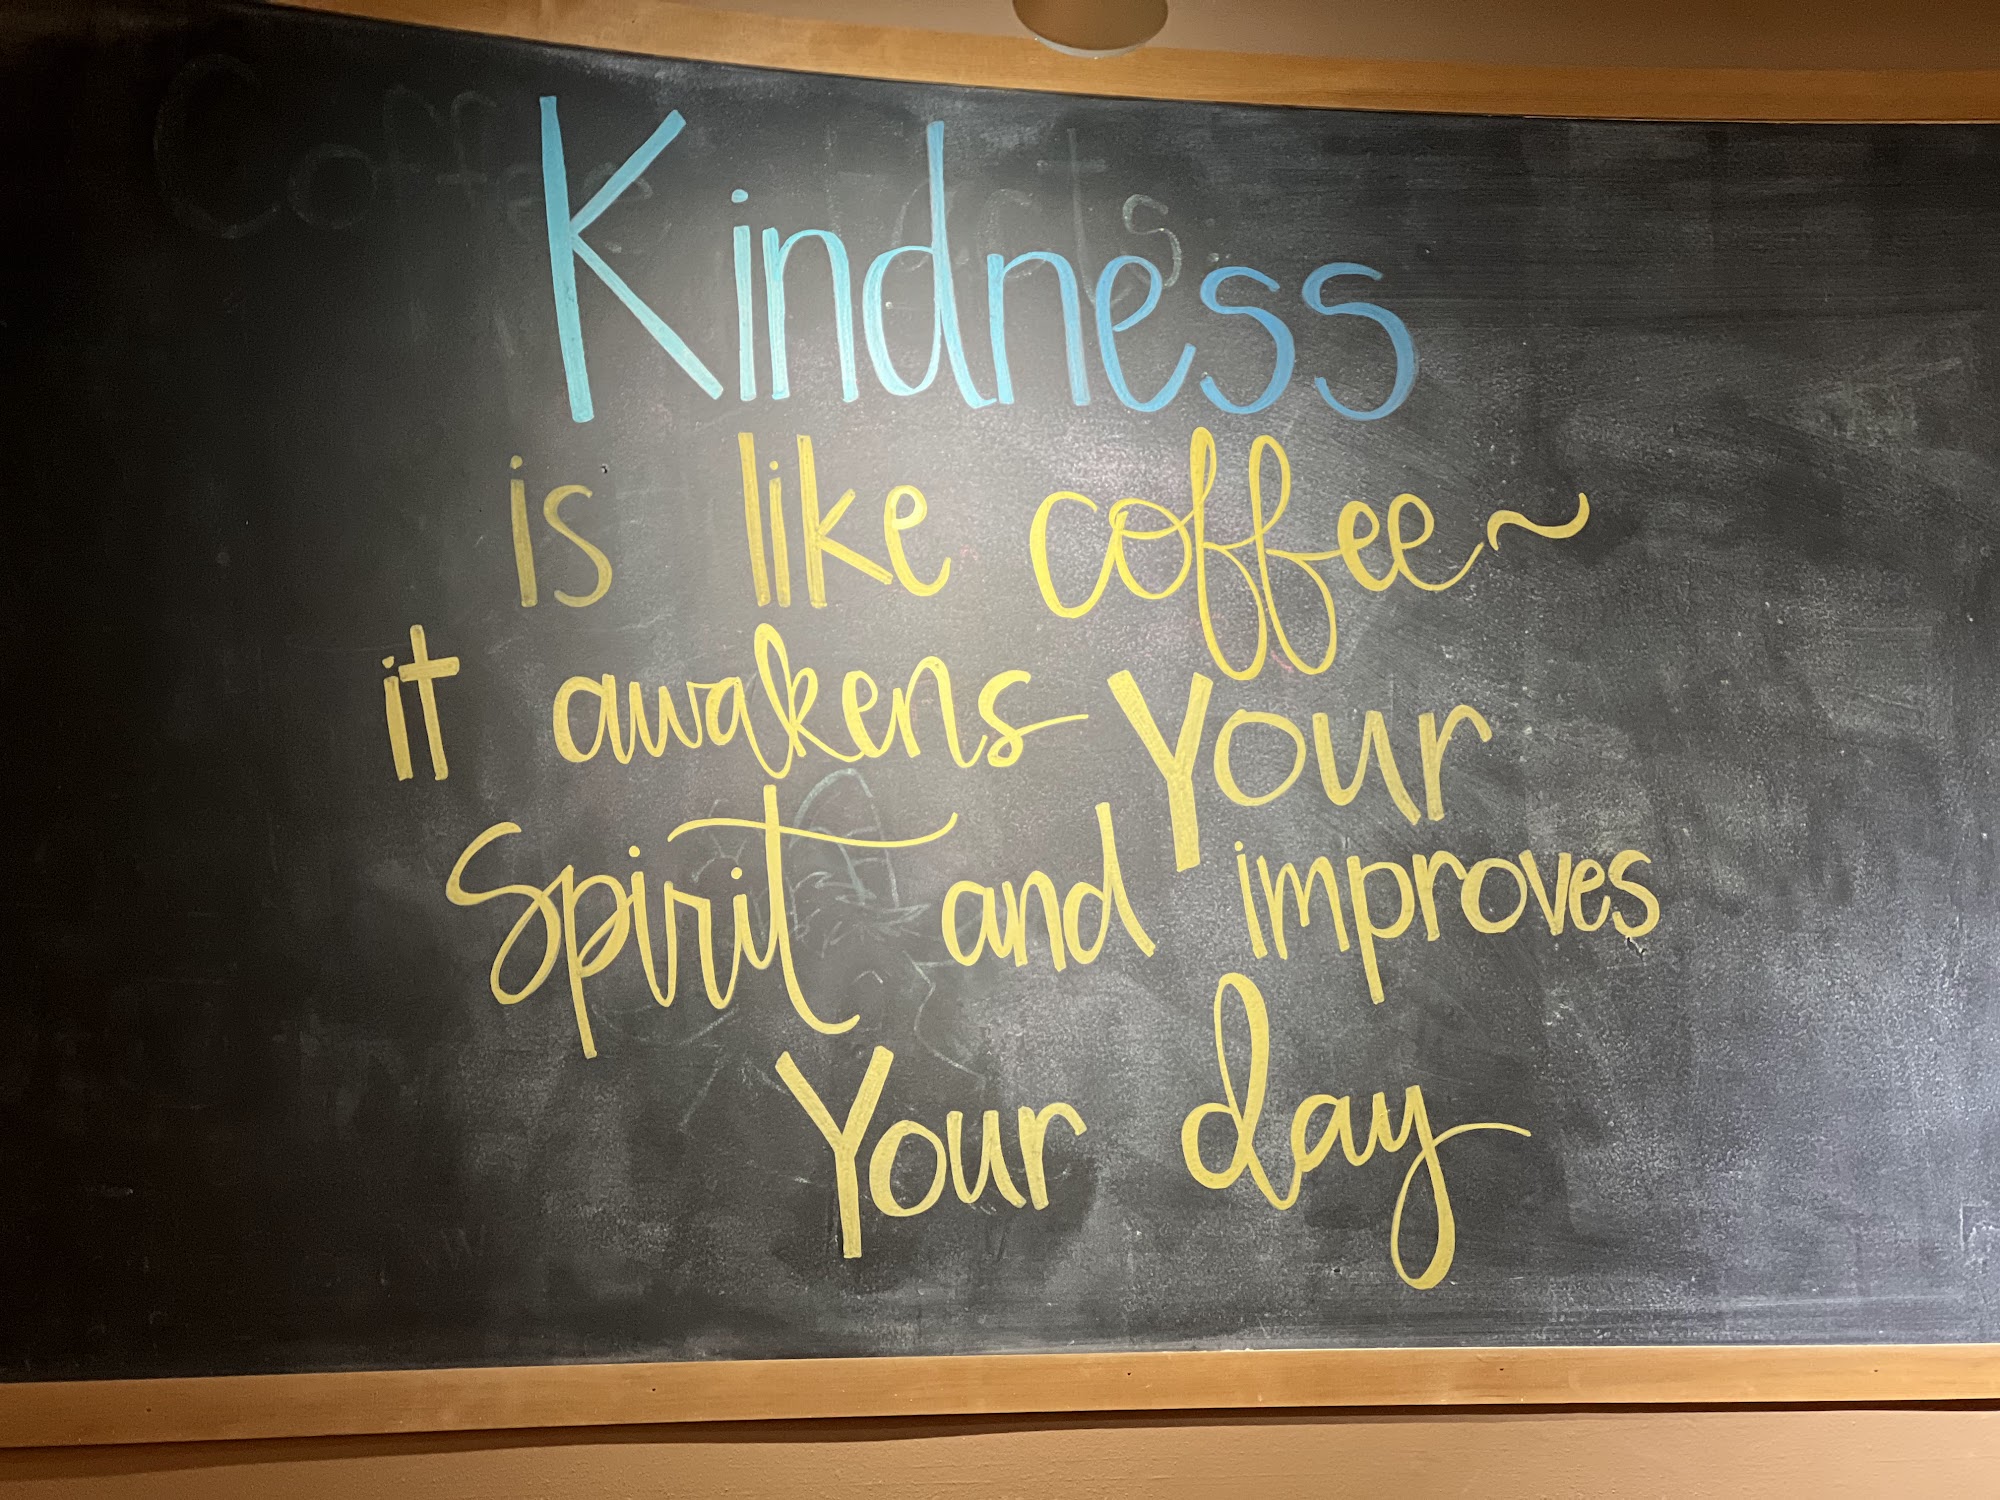 Coffee Facts
Kindness
is like coffee~
it awakens Your
Spirit and improves
Your day